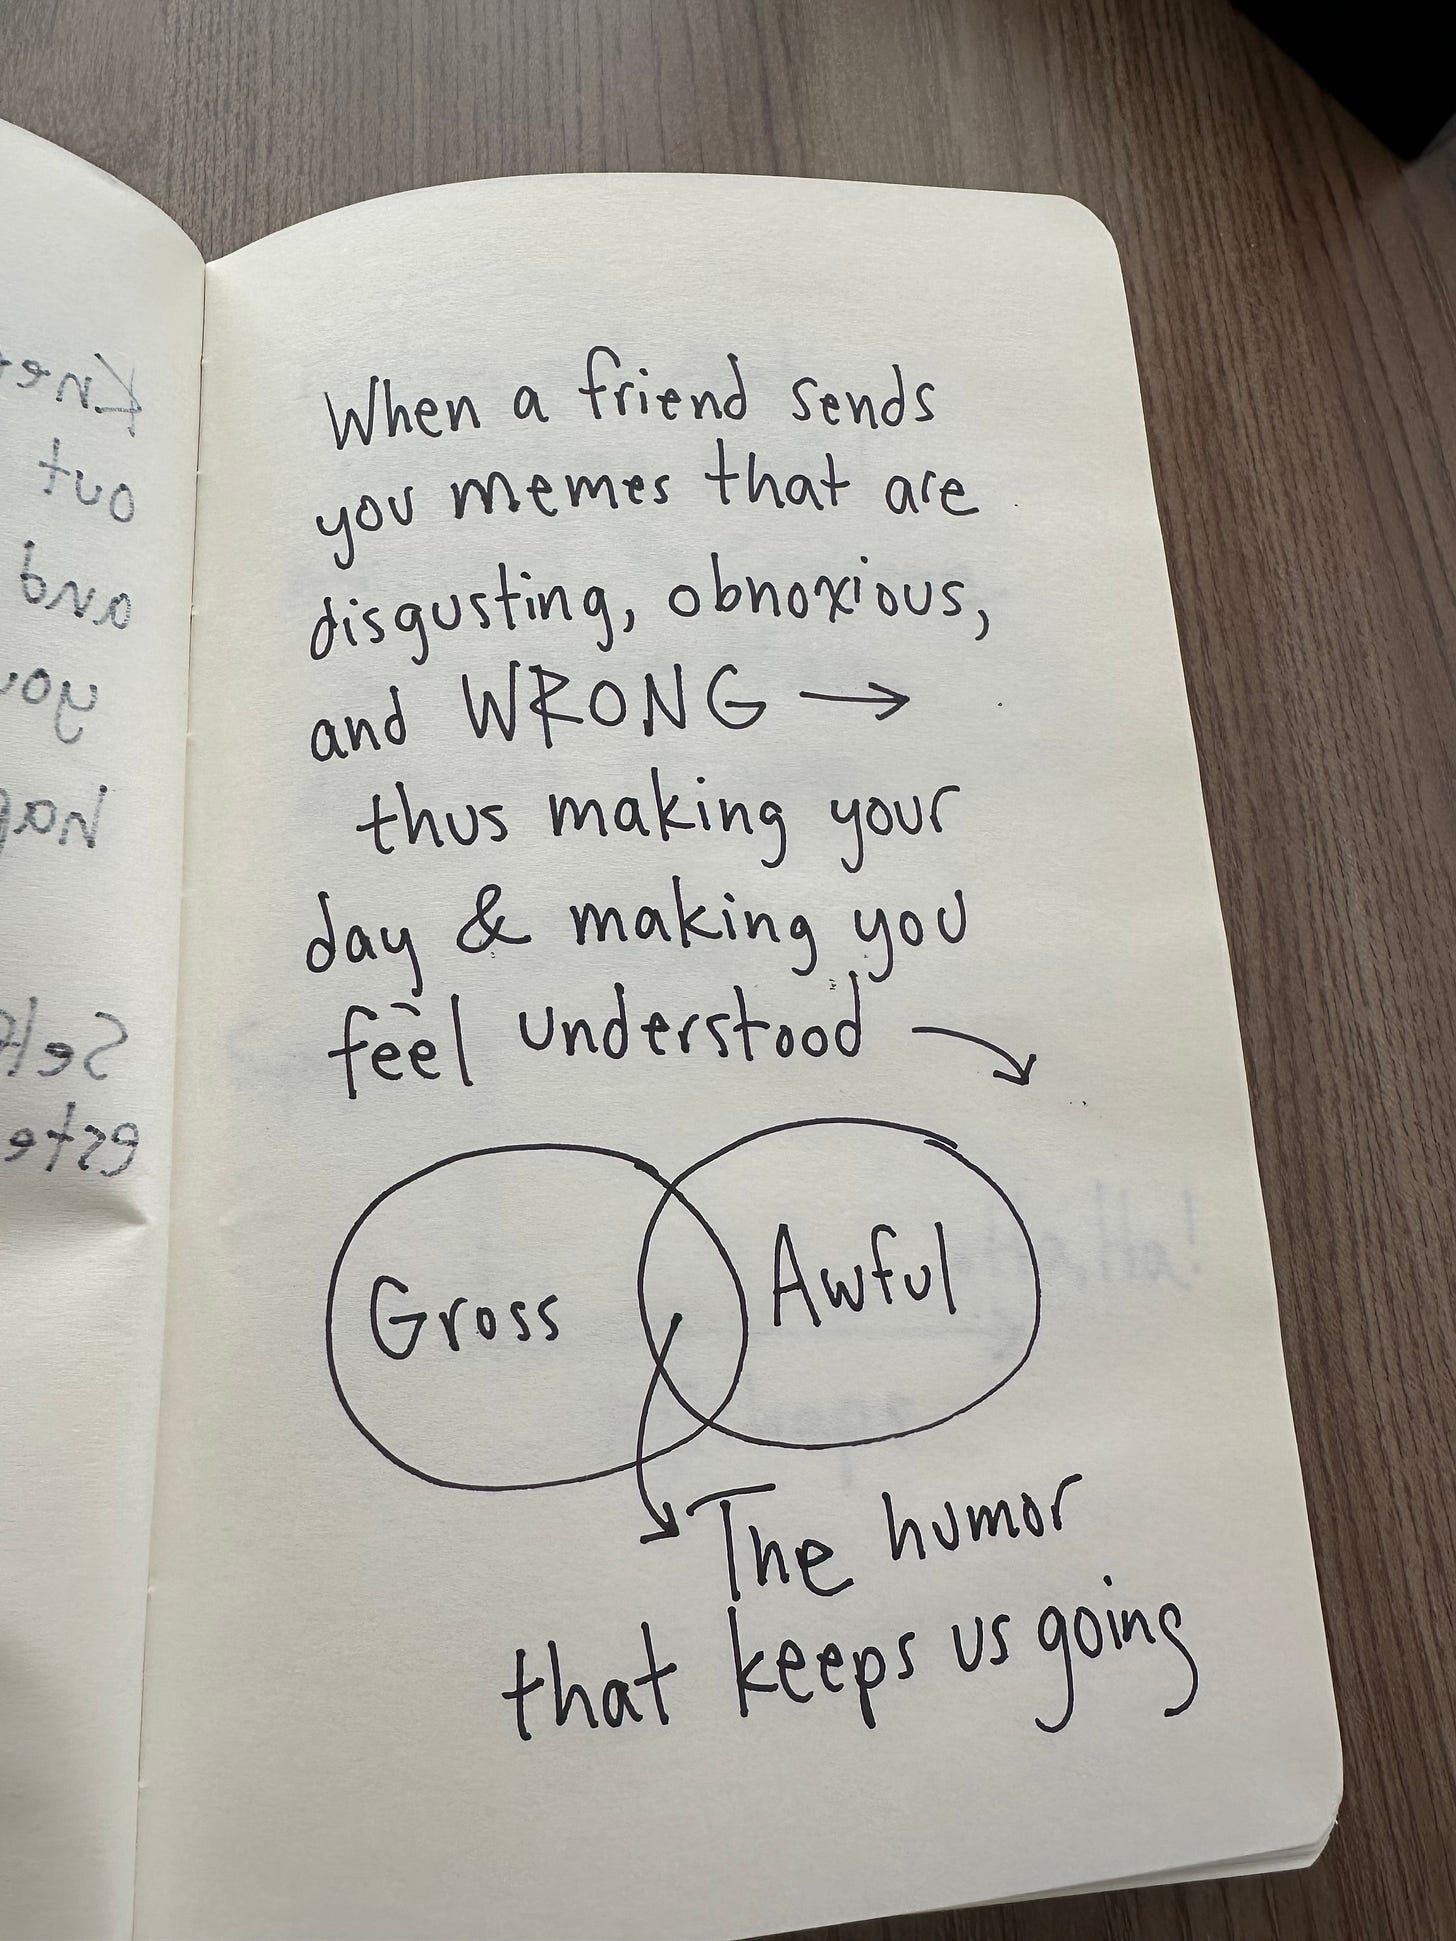 When a friend sends
you memes that are
disgusting, obnoxious,
and WRONG →
thus making your
day & making you
feel understood
Gross
Awful
The humor
that keeps us going
out
and